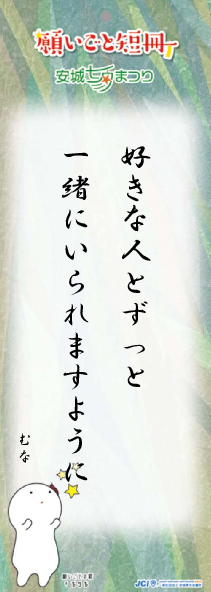 願いごと短冊
安城七夕まつり
好きな人とずっと
一緒にいられますように
むな
JCI